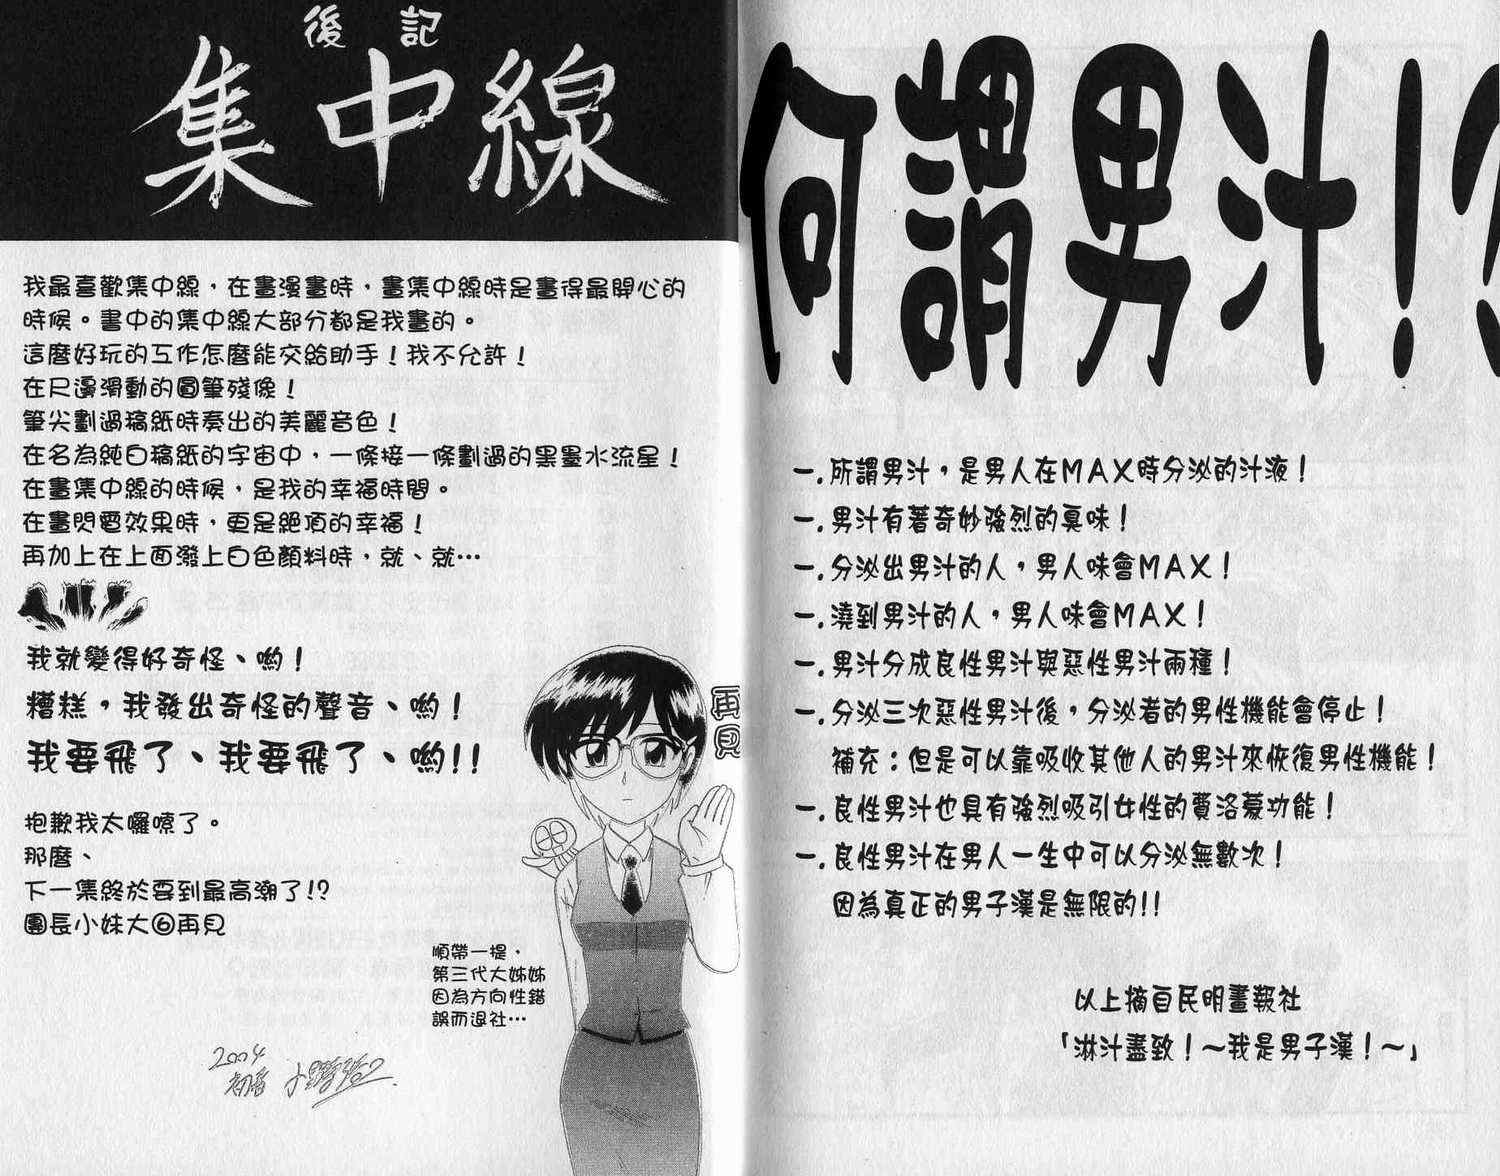 後記
集中線
我最喜歡集中線，在畫漫畫時，畫集中線時是畫得最開心的
時候。書中的集中線大部分都是我畫的。
這麼好玩的工作怎麼能交給助手！我不允許！
在尺邊滑動的圓筆殘像！
筆尖劃過稿紙時奏出的美麗音色！
在名為純白稿紙的宇宙中，一條接一條劃過的黑墨水流星！
在畫集中線的時候，是我的幸福時間。
在畫閃電效果時，更是絕頂的幸福！
再加上在上面潑上白色顏料時，就、就…
我就變得好奇怪、喲！
糟糕，我發出奇怪的聲音、喲！
我要飛了、我要飛了、喲!!
抱歉我太囉嗦了。
那麼、
下一集終於要到最高潮了!?
團長小妹大⑥再見
順帶一提，
第三代大姊姊
因為方向性錯
誤而退社…
再見
2004
初春
何謂男汁!?
一.所謂男汁，是男人在MAX時分泌的汁液！
一.男汁有著奇妙強烈的臭味！
一.分泌出男汁的人，男人味會MAX！
一.澆到男汁的人，男人味會MAX！
一.男汁分成良性男汁與惡性男汁兩種！
一.分泌三次惡性男汁後，分泌者的男性機能會停止！
補充：但是可以靠吸收其他人的男汁來恢復男性機能！
一.良性男汁也具有強烈吸引女性的費洛蒙功能！
一.良性男汁在男人一生中可以分泌無數次！
因為真正的男子漢是無限的!!
以上摘自民明畫報社
「淋汁盡致！～我是男子漢！～」